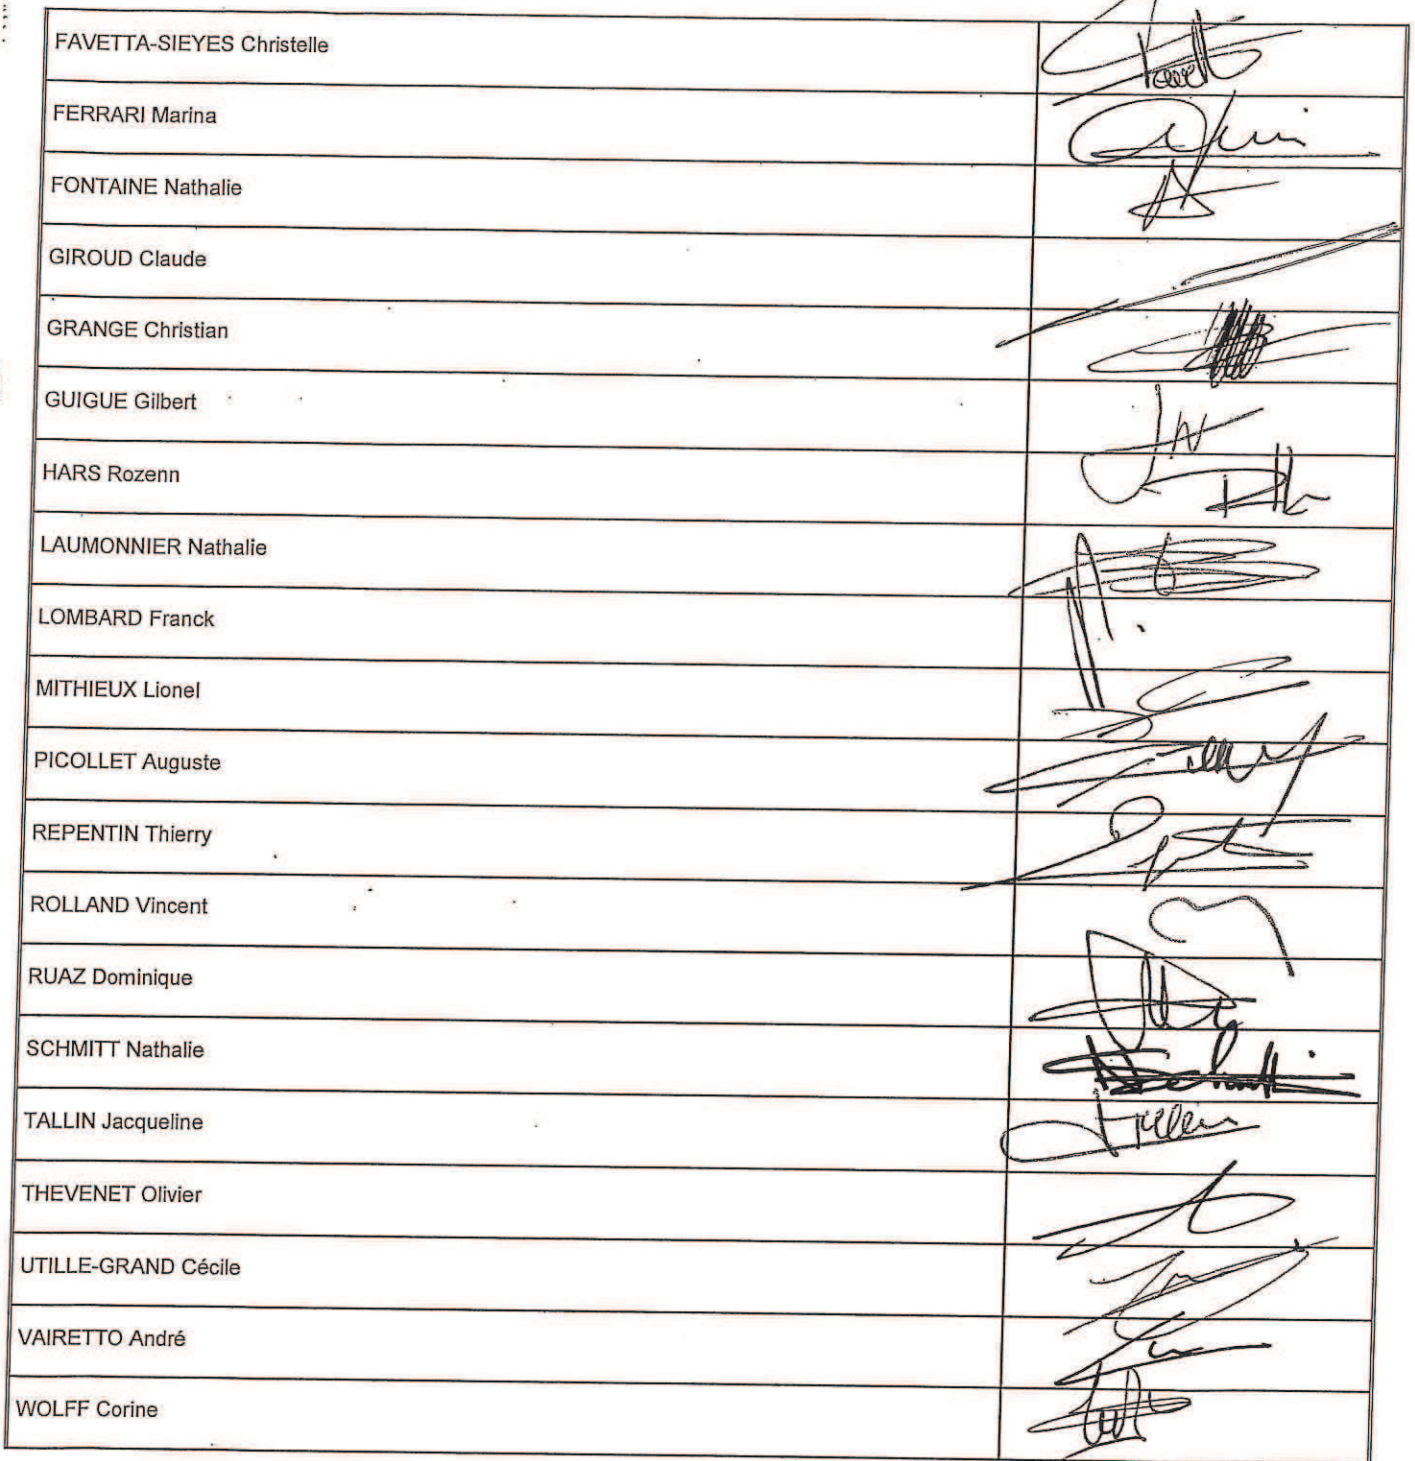 FAVETTA-SIEYES Christelle
FERRARI Marina
FONTAINE Nathalie
GIROUD Claude
GRANGE Christian
GUIGUE Gilbert
HARS Rozenn
LAUMONNIER Nathalie
LOMBARD Franck
MITHIEUX Lionel
PICOLLET Auguste
REPENTIN Thierry
ROLLAND Vincent
RUAZ Dominique
SCHMITT Nathalie
TALLIN Jacqueline
THEVENET Olivier
UTILLE-GRAND Cécile
VAIRETTO André
WOLFF Corine